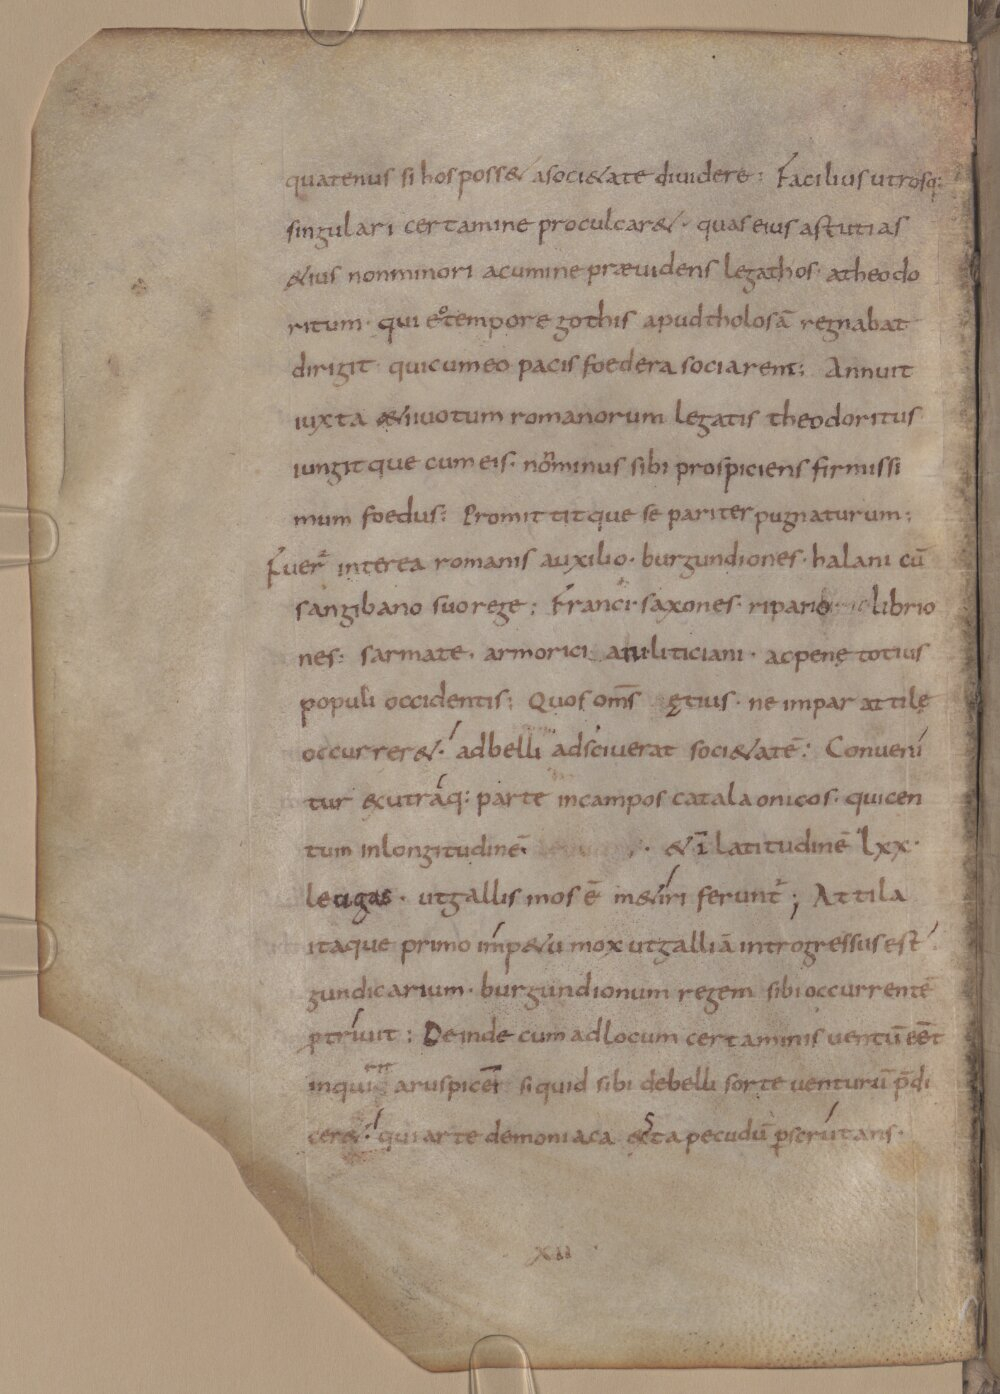 quatenus si hos poss& asoci&ate diuidere: Facilius utrosq:
singulari certamine proculcar&· quas eius astutias
&ius nonminori acumine præuidens legathos· atheodo
ritum· qui eotempore gothis apud tholosā regnabat
dirigit quicum eo pacis foedera sociarent; Annuit
iuxta &iiuotum romanorum legatis theodoritus
iungitque cum eis· nōminus sibi prospiciens firmissi
mum foedus: Promittitque se pariter pugnaturum;
Fuer̄ interea romanis auxilio· burgundiones· halani cū
sangibano suo rege; Franci· saxones· ripario librio
nes: sarmate· armorici liticiani· ac penę totius
populi occidentis; Quos om̄s ętius· ne impar attile
occurrer&· ad belli adsciuerat soci&atē: Conueni
tur exutraq: parte incampos catalaonicos· quicen
tum inlongitudinē · & ī latitudinē lxx·
leugas· utgallis mos ē m&iri ferunt̄; Attila
itaque primo imp&u mox utgalliā introgressus est
gundicarium· burgundionum regem sibi occurrentē
ptriuit: Deinde cum adlocum certaminis uentū eēt
aruspicē siquid sibi debelli sorte uenturū p̄di
cer&· qui arte demoniaca exta pecudū pscrutans·
XII